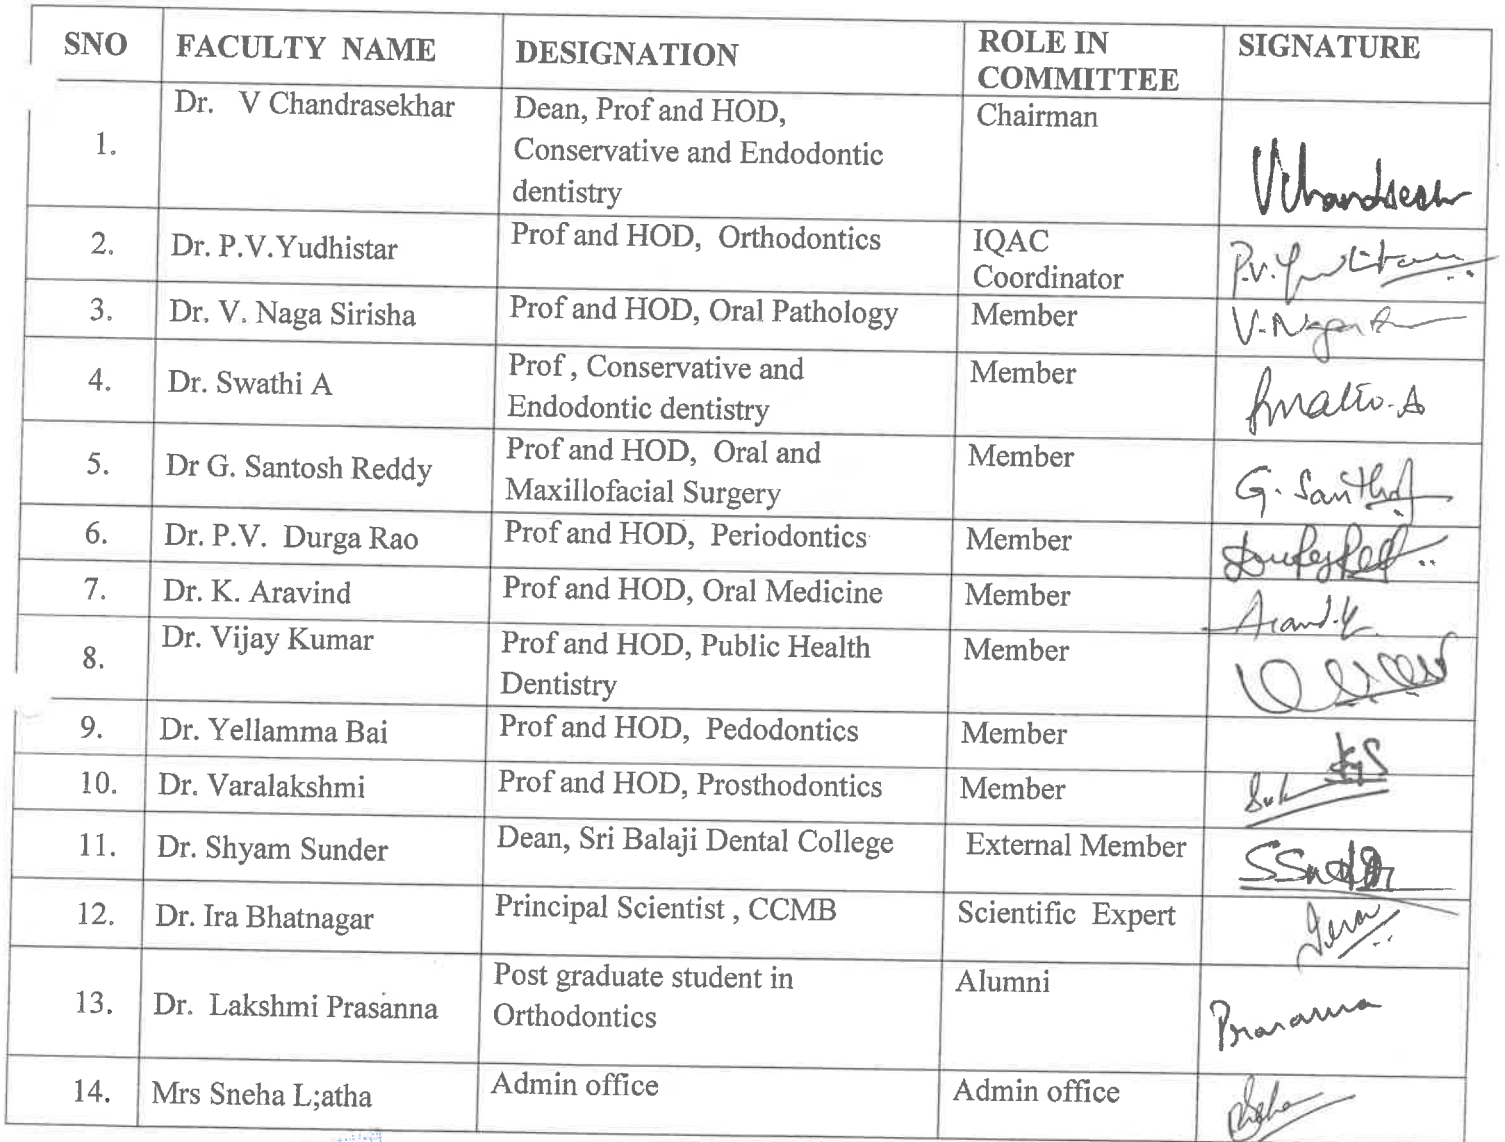 SNO FACULTY NAME DESIGNATION ROLE IN COMMITTEE SIGNATURE
1. Dr. V Chandrasekhar Dean, Prof and HOD, Chairman
Conservative and Endodontic
dentistry
2. Dr. P.V.Yudhistar Prof and HOD, Orthodontics IQAC
Coordinator
3. Dr. V. Naga Sirisha Prof and HOD, Oral Pathology Member
4. Dr. Swathi A Prof , Conservative and Member
Endodontic dentistry
5. Dr G. Santosh Reddy Prof and HOD, Oral and Member
Maxillofacial Surgery
G. Santhosh
6. Dr. P.V. Durga Rao Prof and HOD, Periodontics Member
7. Dr. K. Aravind Prof and HOD, Oral Medicine Member
8. Dr. Vijay Kumar Prof and HOD, Public Health Member
Dentistry
9. Dr. Yellamma Bai Prof and HOD, Pedodontics Member
10. Dr. Varalakshmi Prof and HOD, Prosthodontics Member
11. Dr. Shyam Sunder Dean, Sri Balaji Dental College External Member
12. Dr. Ira Bhatnagar Principal Scientist , CCMB Scientific Expert
13. Dr. Lakshmi Prasanna Post graduate student in Alumni
Orthodontics
Prasanna
14. Mrs Sneha L;atha Admin office Admin office